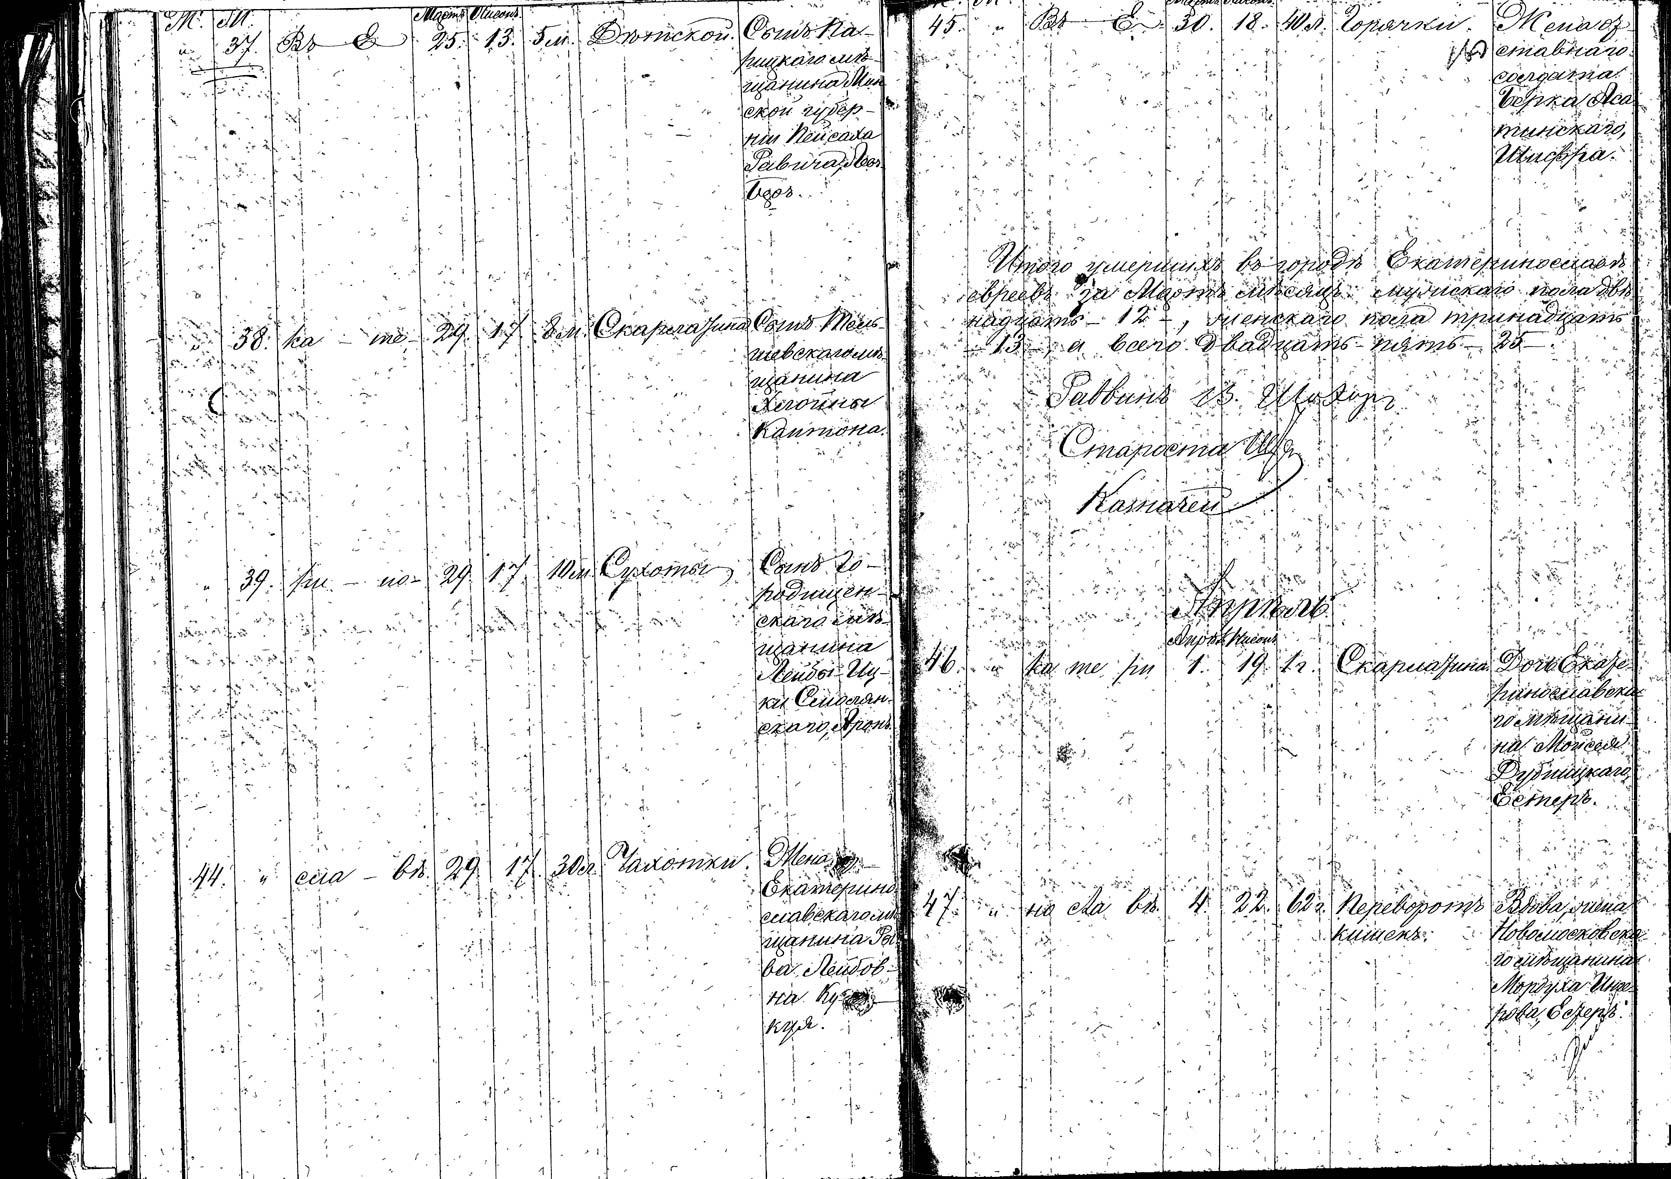 Ж. М. Мартъ Нисонъ
37. Въ Е 25. 13. 5 м. Дѣтской. Сынъ Па-
рицкаго мѣ-
щанина Мин
ской губер-
ніи Пейсаха
Равича,
38. ка - те- 29. 17. 8 м. Скарлатина Сынъ Тель-
шевскаго мѣ-
щанина
Хлойны
Каптона.
39. ри - но- 29. 17. 10 м. Сухоты Сынъ Го-
родищен-
скаго мѣ-
щанина
Лейбы-Иц-
ки Смолян-
скаго, Аронъ
44. " сла - вѣ. 29. 17. 30 л. Чахотки. Жена
Екатерино
славскаго мѣ
щанина
ва Лейбов-
на
куя.
45. " Въ Е 30. 18. 40 л. Горячки. Жена от-
ставнаго
солдата
Берка Аса
тинскаго,
Шифра.
Итого умершихъ въ городѣ Екатеринославѣ
евреевъ за Мартъ мѣсяцъ: мужскаго пола двѣ
надцать - 12 -, женскаго пола тринадцать
- 13 -, а всего двадцать-пять - 25 -
Раввинъ
Староста
Казначей
Апрѣль
Апрѣль Нисонъ
46. " ка те ри 1. 19. 1 г. Скарлатина Дочь Екате-
ринославска-
го мѣщани-
на Мойсея
Дубницкаго,
Естеръ.
47. " но сла вѣ. 4. 22. 62 г. Переворотъ Вдова, жена
кишекъ. Новомосковска-
го мѣщанина
Мордуха
рова, Естеръ.